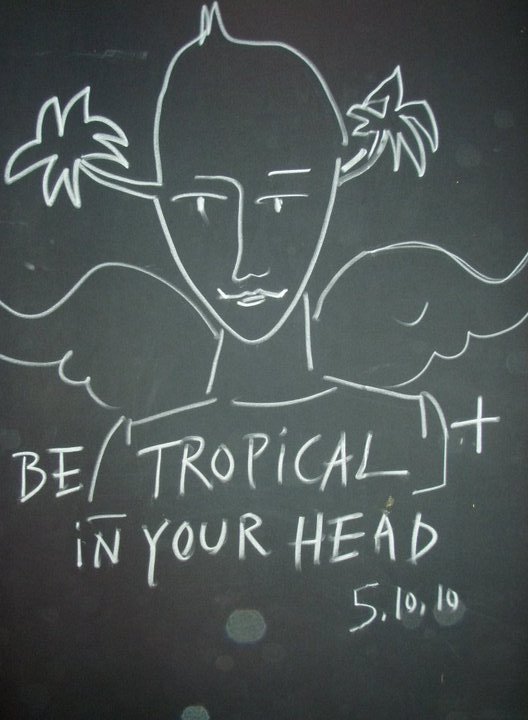 BE TROPiCAL +
iN YOUR HEAD
5.10.10